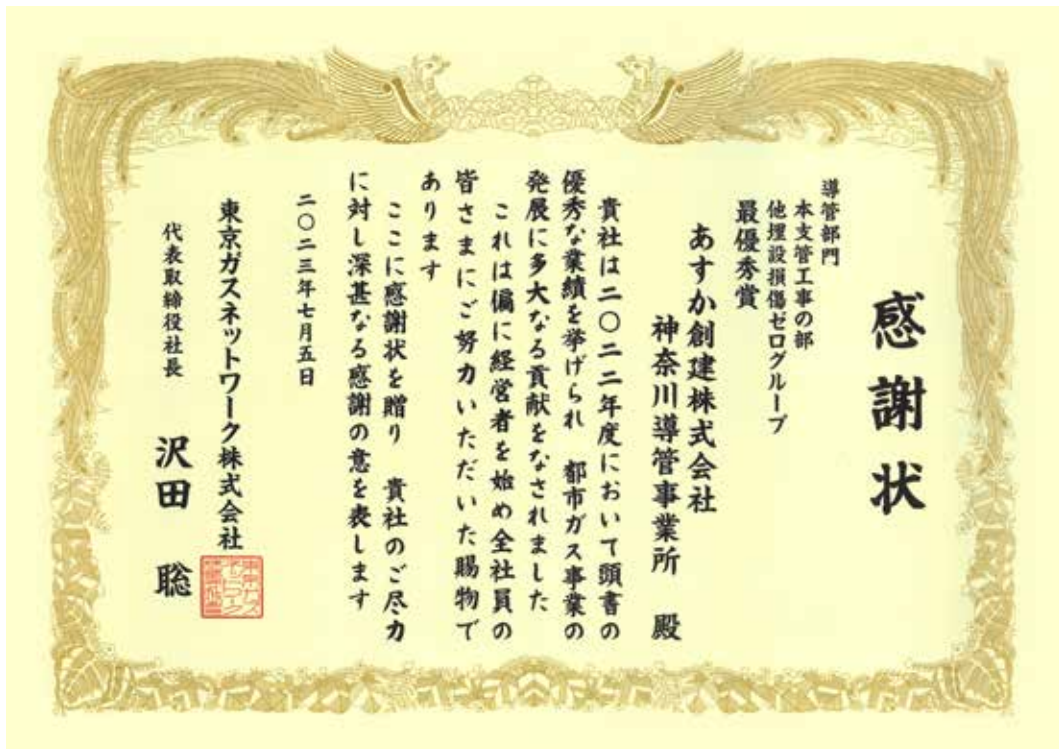 感謝状
導管部門
本支管工事の部
他埋設損傷ゼログループ
最優秀賞
あすか創建株式会社
神奈川導管事業所 殿
貴社は二〇二二年度において頭書の
優秀な業績を挙げられ 都市ガス事業の
発展に多大なる貢献をなされました
これは偏に経営者を始め全社員の
皆さまにご努力いただいた賜物で
あります
ここに感謝状を贈り 貴社のご尽力
に対し深甚なる感謝の意を表します
二〇二三年七月五日
東京ガスネットワーク株式会社
代表取締役社長 沢田 聡